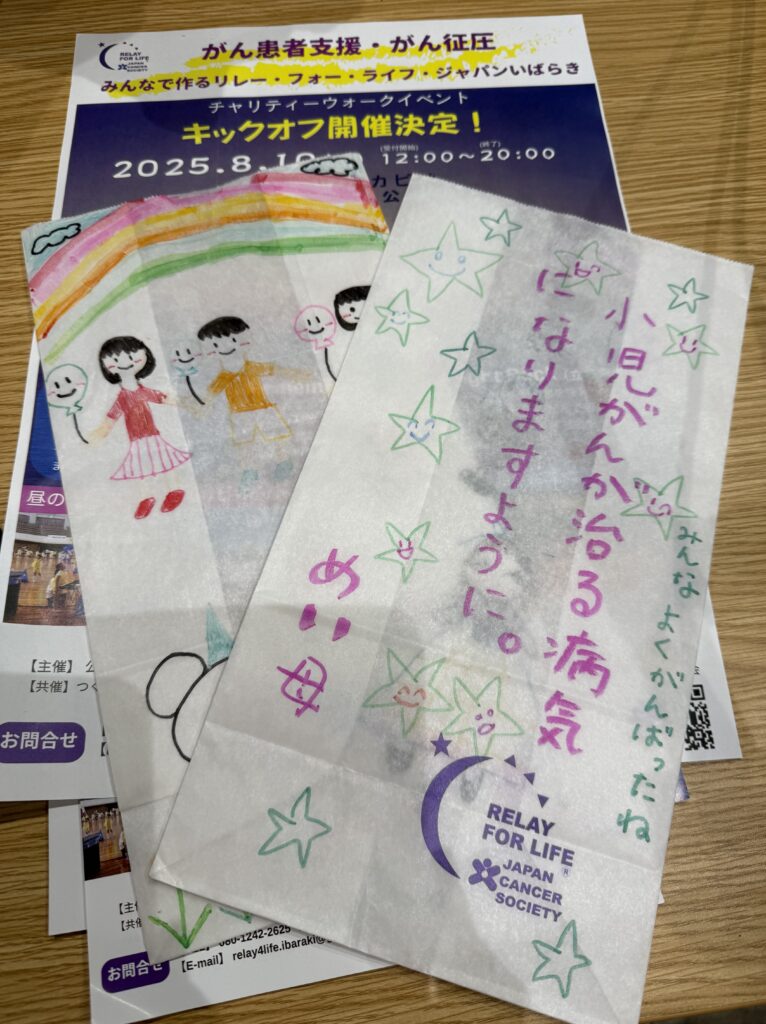 RELAY
FOR LIFE
JAPAN
CANCER
SOCIETY
がん患者支援・がん征圧
みんなで作るリレー・フォー・ライフ・ジャパンいばらき
チャリティーウォークイベント
キックオフ開催決定!
(受付開始) (終了)
2025.8.10 12:00~20:00
カピ
公
小児がんが治る病気
になりますように。
めい母
みんなよくがんばったね
RELAY
FOR LIFE®
JAPAN
CANCER
SOCIETY
昼の
【主催】公
【共催】つく
お問合せ
【主催
【共催
お問合せ
080-1242-2625
【E-mail】 relay4life.ibaraki@